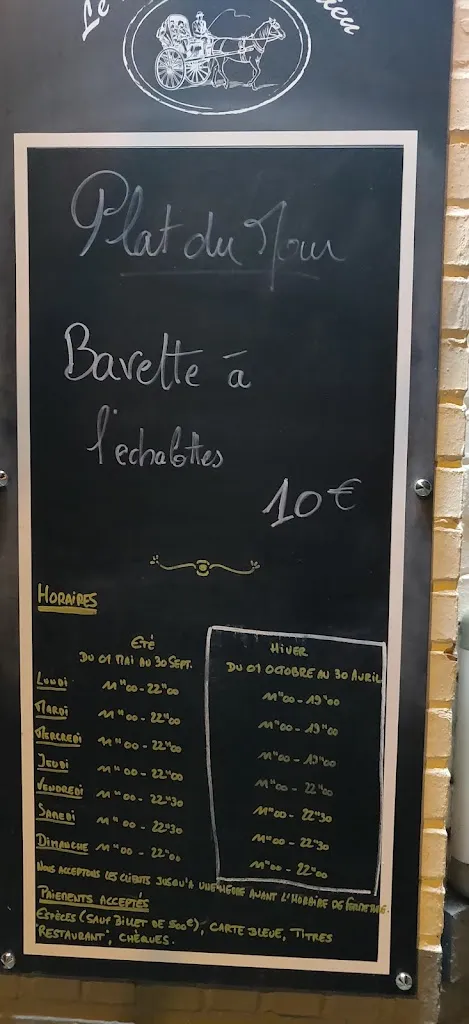 Le
ieu
Plat du Jour
Bavette à
l'echalottes
10€
HORAIRES
ETÉ
DU 01 MAI AU 30 SEPT.
HIVER
DU 01 OCTOBRE AU 30 AVRIL
LUNDI 11H00 - 22H00 11H00 - 19H00
MARDI 11H00 - 22H00 11H00 - 19H00
MERCREDI 11H00 - 22H00 11H00 - 19H00
JEUDI 11H00 - 22H00 11H00 - 22H00
VENDREDI 11H00 - 22H30 11H00 - 22H30
SAMEDI 11H00 - 22H30 11H00 - 22H30
DIMANCHE 11H00 - 22H00 11H00 - 22H00
NOUS ACCEPTONS LES CLIENTS JUSQU'À UNE HEURE AVANT L'HORAIRE DE FERMETURE.
PAIEMENTS ACCEPTÉS
ESPÈCES (SAUF BILLET DE 500€), CARTE BLEUE, TITRES
"RESTAURANT", CHÈQUES.